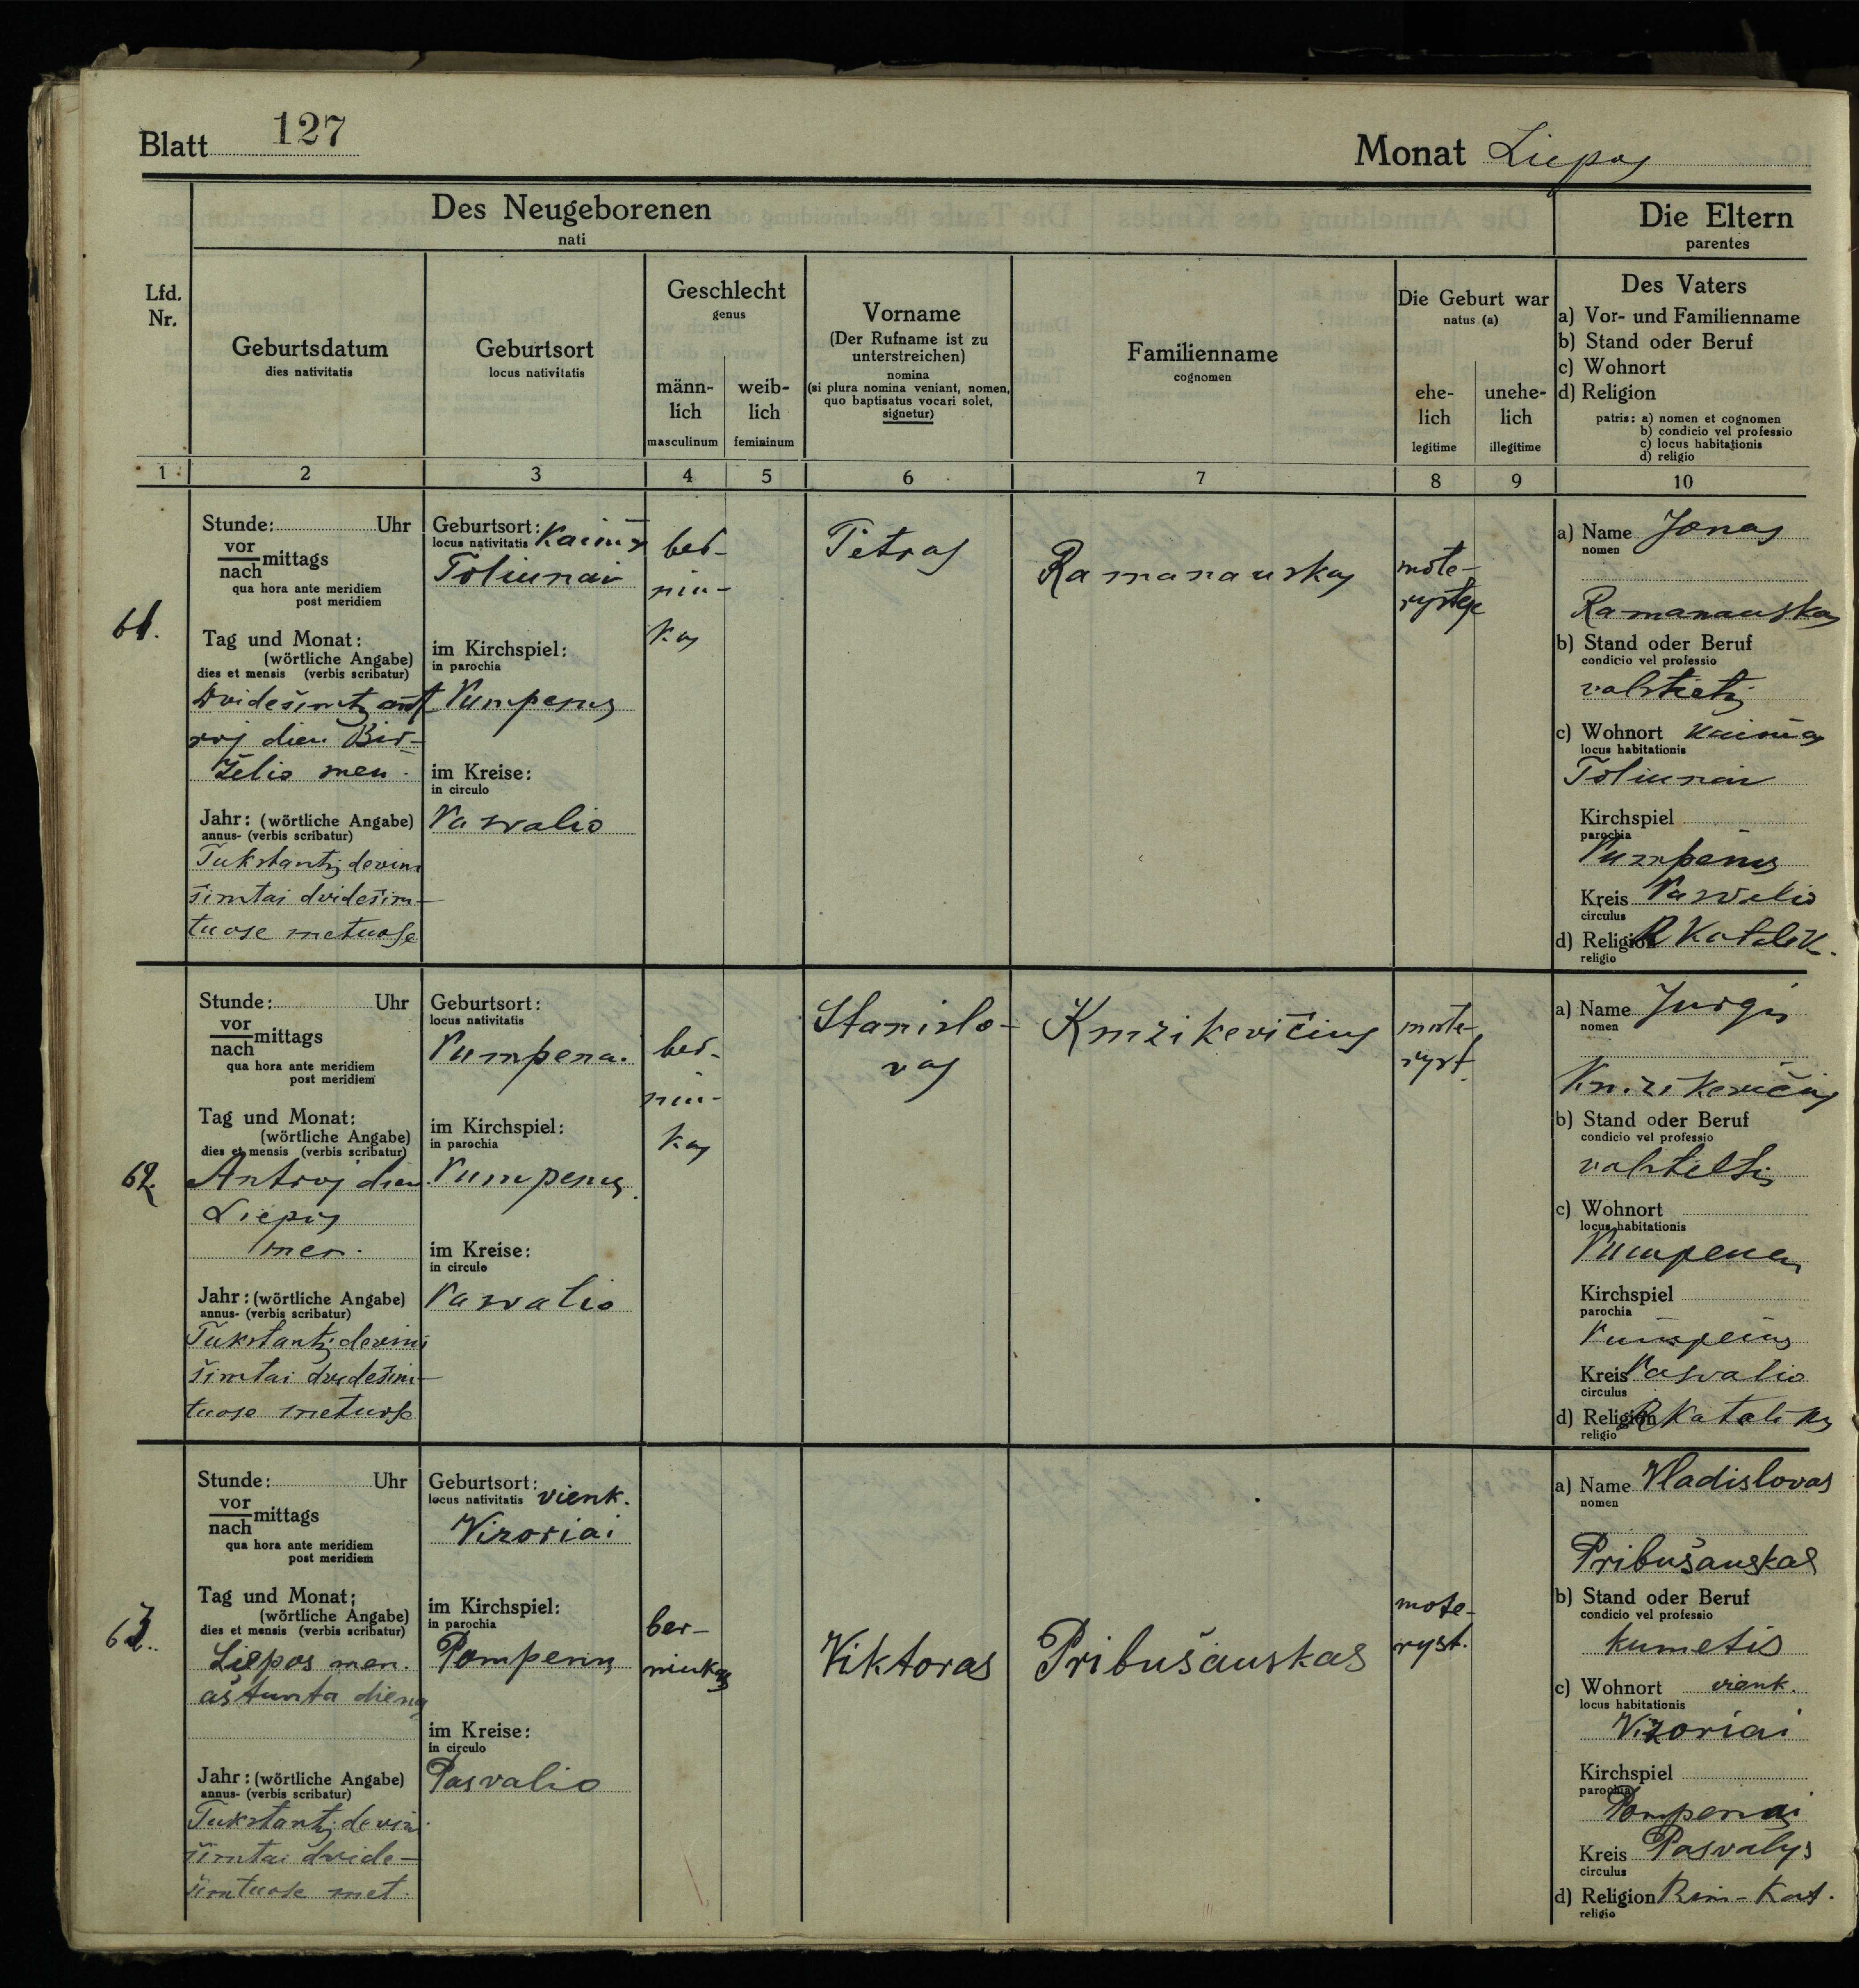 Blatt 127
Monat Liepos
Des Neugeborenen
nati
Die Eltern
parentes
Lfd.
Nr.
Geburtsdatum
dies nativitatis
Geburtsort
locus nativitatis
Geschlecht
genus
männ-
lich
masculinum
weib-
lich
femininum
Vorname
(Der Rufname ist zu
unterstreichen)
nomina
(si plura nomina veniant, nomen,
quo baptisatus vocari solet,
signetur)
Familienname
cognomen
Die Geburt war
natus (a)
ehe-
lich
legitime
unehe-
lich
illegitime
Des Vaters
a) Vor- und Familienname
b) Stand oder Beruf
c) Wohnort
d) Religion
patris: a) nomen et cognomen
b) condicio vel professio
c) locus habitationis
d) religio
1 2 3 4 5 6 7 8 9 10
61.
Stunde: Uhr
vor
nach mittags
qua hora ante meridiem
post meridiem
Tag und Monat:
(wörtliche Angabe)
dies et mensis (verbis scribatur)
Dvidešimtį ant
roj dien Bir-
želio men.
Jahr: (wörtliche Angabe)
annus- (verbis scribatur)
Tukstantį devini
šimtai dvidešim-
tuose metuose
Geburtsort: Kaimas
locus nativitatis
Toliunai
im Kirchspiel:
in parochia
Pumpenų
im Kreise:
in circulo
Pasvalio
ber-
nin-
kas
Petras
Ramanauskas
mote-
rystėje
a) Name Jonas
nomen
Ramanauskas
b) Stand oder Beruf
condicio vel professio
valstietis
c) Wohnort Kaimas
locus habitationis
Toliunai
Kirchspiel
parochia
Pumpenų
Kreis Pasvalio
circulus
d) Religion R Katalik.
religio
62
Stunde: Uhr
vor
nach mittags
qua hora ante meridiem
post meridiem
Tag und Monat:
(wörtliche Angabe)
dies et mensis (verbis scribatur)
Antroj dien
Liepos
men.
Jahr: (wörtliche Angabe)
annus- (verbis scribatur)
Tukstantį devini
šimtai dvidešim-
tuose metuose
Geburtsort:
locus nativitatis
Pumpena.
im Kirchspiel:
in parochia
Pumpenų
im Kreise:
in circulo
Pasvalio
ber-
nin-
kas
Stanislo-
vas
Kmzikevičius
mote-
ryst.
a) Name Jurgis
nomen
Kmzikevičius
b) Stand oder Beruf
condicio vel professio
valstietis
c) Wohnort
locus habitationis
Pumpenai
Kirchspiel
parochia
Pumpenų
Kreis Pasvalio
circulus
d) Religion R Katalikų
religio
63.
Stunde: Uhr
vor
nach mittags
qua hora ante meridiem
post meridiem
Tag und Monat;
(wörtliche Angabe)
dies et mensis (verbis scribatur)
Liepos men.
aštunta dieną
Jahr: (wörtliche Angabe)
annus- (verbis scribatur)
Tukstantį devin
šimtai dvide-
šimtuose met.
Geburtsort: vienk.
locus nativitatis
Vizoriai
im Kirchspiel:
in parochia
Pompenų
im Kreise:
in circulo
Pasvalio
ber-
niukas
Viktoras
Pribušauskas
mote-
ryst.
a) Name Vladislovas
nomen
Pribušauskas
b) Stand oder Beruf
condicio vel professio
kumetis
c) Wohnort vienk.
locus habitationis
Vizoriai
Kirchspiel
parochia
Pompenai
Kreis Pasvalys
circulus
d) Religion Rim-Kat.
religio